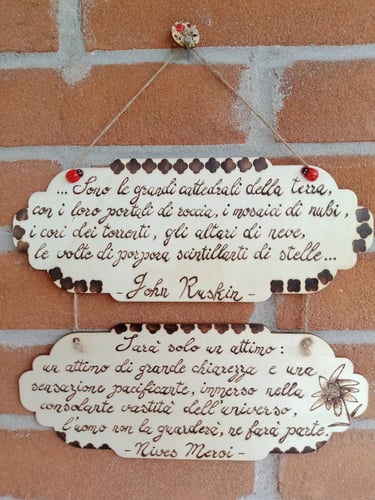 ... Sono le grandi cattedrali della terra,
con i loro portali di roccia, i mosaici di nubi,
i cori dei torrenti, gli altari di neve,
le volte di porpora scintillanti di stelle...
- John Ruskin -
Sarà solo un attimo:
un attimo di grande chiarezza e una
sensazione pacificante, immerso nella
consolante vastità dell'universo,
l'uomo non la guarderà, ne farà parte.
- Nives Meroi -